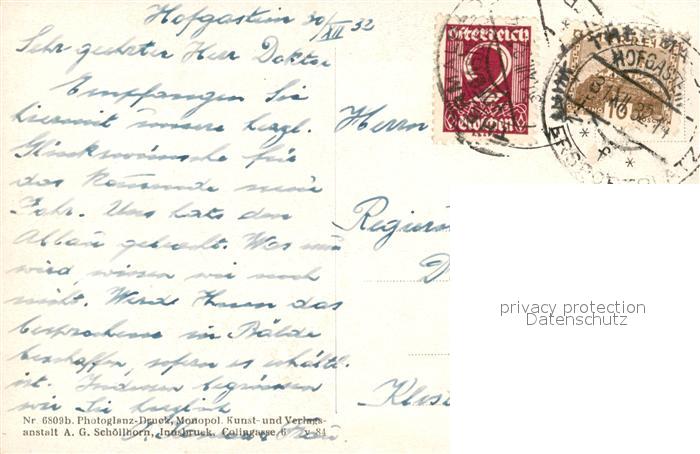 Hofgastein 30/XII 32
Sehr geehrter Herr Doktor
Empfangen Sie
hiermit unsere herzl.
Glückwünsche für
das kommende neue
Jahr. Uns hats den
Abbau gebracht. Was nun
wird, wissen wir noch
nicht. Werde Ihnen das
besprochene in Bälde
beschaffen, sofern es erhältl.
ist. Indessen begrüssen
wir Sie herzlich
Nr. 6809b. Photoglanz-Druck, Monopol. Kunst- und Verlags-
anstalt A. G. Schöllhorn, Innsbruck, Colingasse 6 v 84
Österreich
2
Groschen
HOFGASTEIN
THERMAL
10
Herrn
Regier
D
Klost
privacy protection
Datenschutz